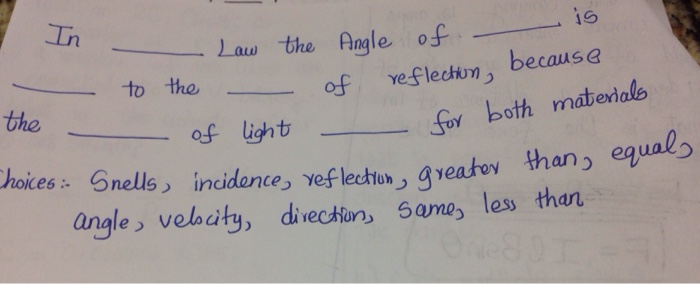 In ____ Law the Angle of ____ is
____ to the ____ of reflection, because
the ____ of light ____ for both materials
Choices:- Snells, incidence, reflection, greater than, equal,
angle, velocity, direction, same, less than